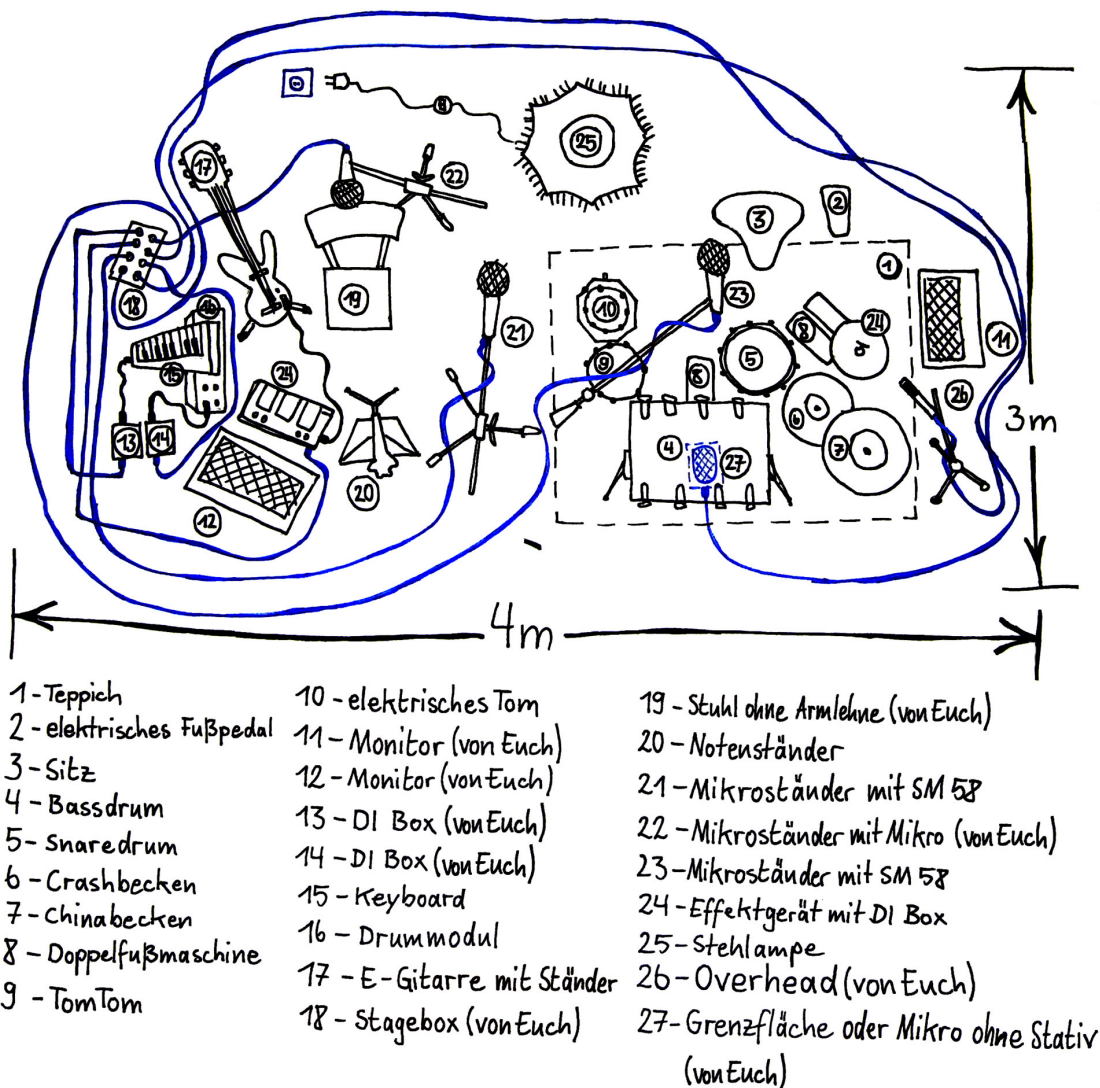 25
17
22
2
3
1
18
16
19
23
10
24
21
8
11
9
5
15
24
8
26
6
3m
13
14
4
27
7
20
12
4m
1 - Teppich
2 - elektrisches Fußpedal
3 - Sitz
4 - Bassdrum
5 - Snaredrum
6 - Crashbecken
7 - Chinabecken
8 - Doppelfußmaschine
9 - TomTom
10 - elektrisches Tom
11 - Monitor (von Euch)
12 - Monitor (von Euch)
13 - DI Box (von Euch)
14 - DI Box (von Euch)
15 - Keyboard
16 - Drummodul
17 - E-Gitarre mit Ständer
18 - Stagebox (von Euch)
19 - Stuhl ohne Armlehne (von Euch)
20 - Notenständer
21 - Mikroständer mit SM 58
22 - Mikroständer mit Mikro (von Euch)
23 - Mikroständer mit SM 58
24 - Effektgerät mit DI Box
25 - Stehlampe
26 - Overhead (von Euch)
27 - Grenzfläche oder Mikro ohne Stativ
(von Euch)